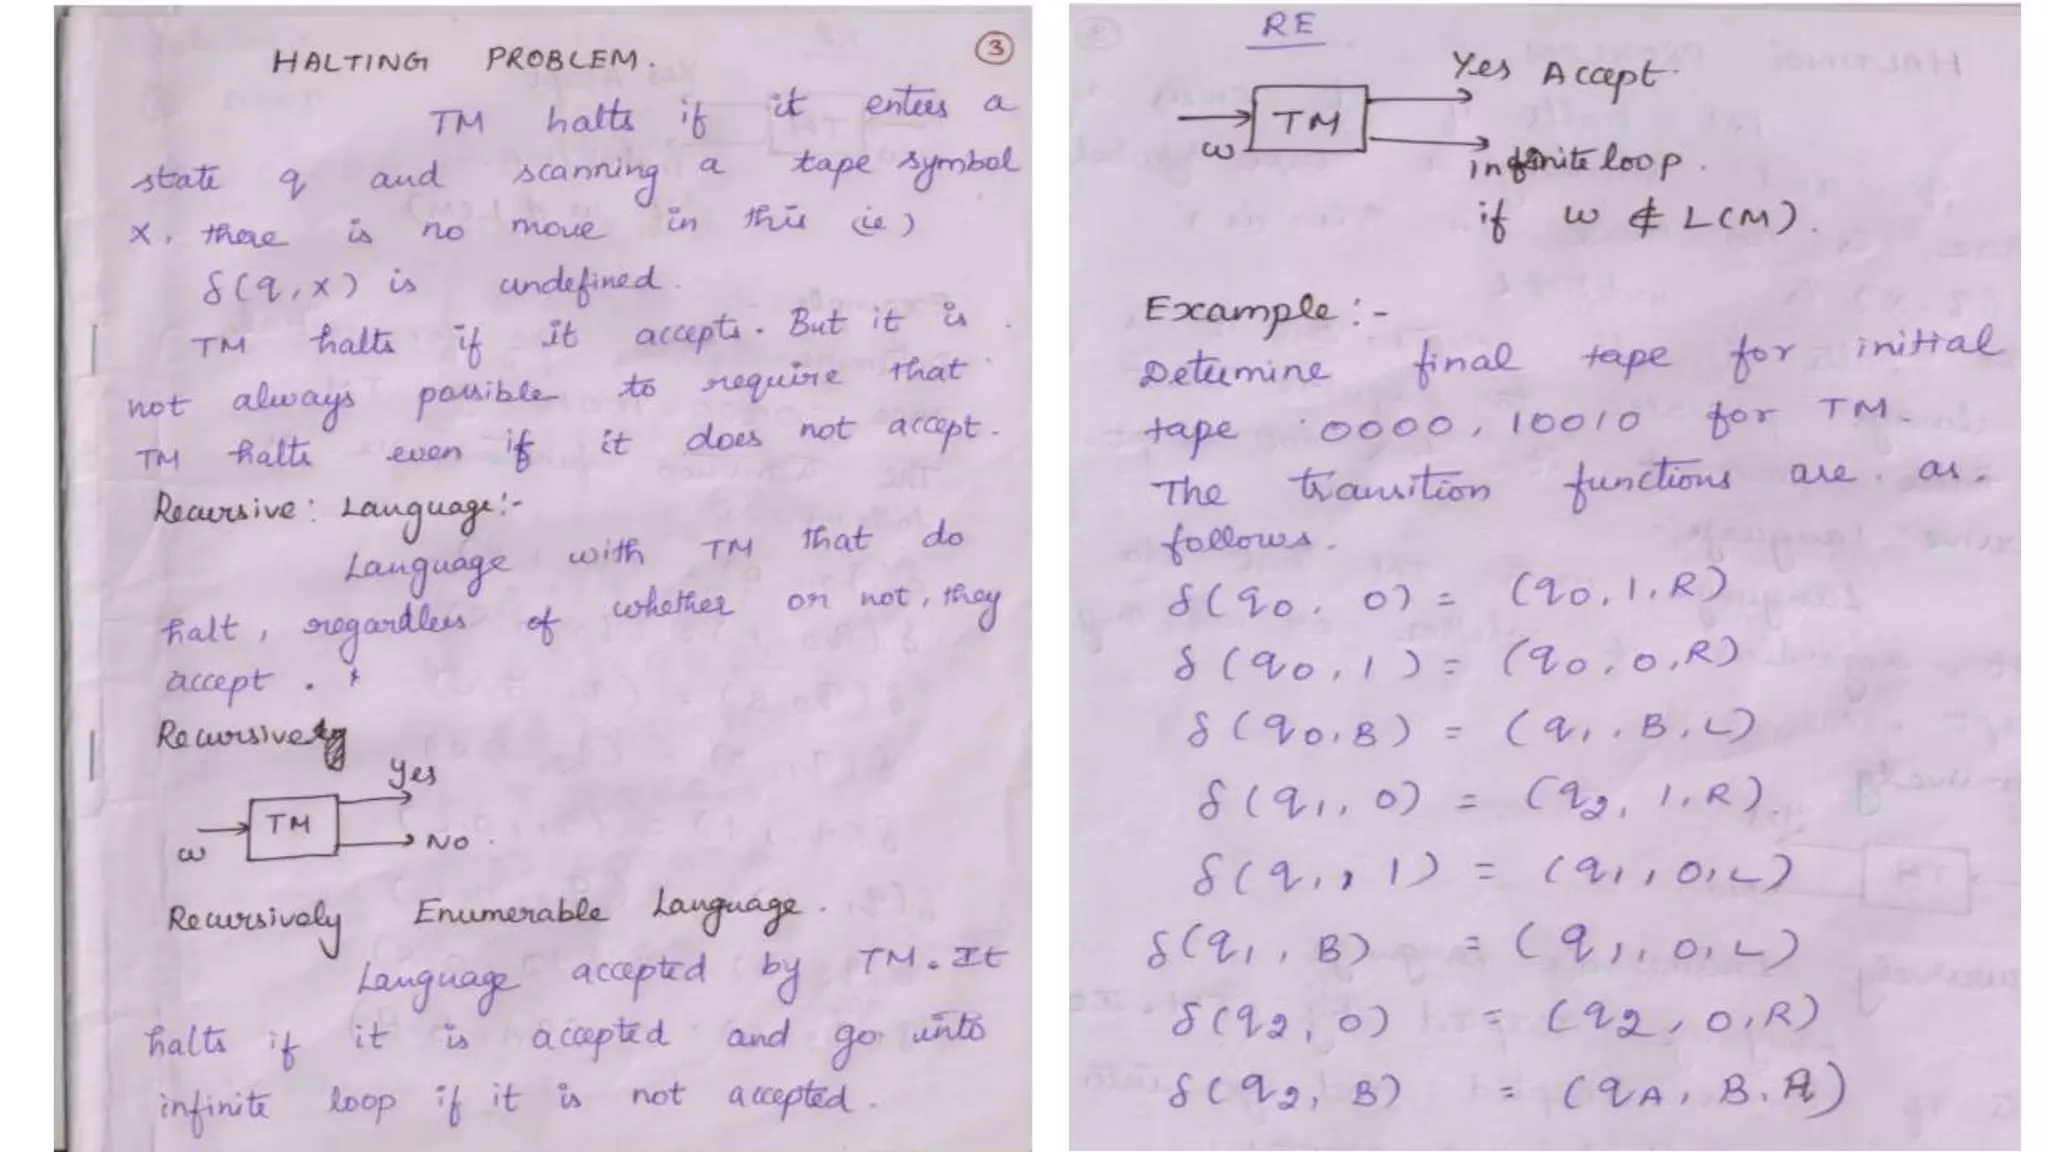 HALTING PROBLEM. 3
TM halts if it enters a
state q and scanning a tape symbol
x, there is no move in this (ie)
δ(q,x) is undefined.
TM halts if it accepts. But it is
not always possible to require that
TM halts even if it does not accept.
Recursive: Language:-
Language with TM that do
halt, regardless of whether or not, they
accept.
Recursively
Yes
w TM
No.
Recursively Enumerable Language.
Language accepted by TM. It
halts if it is accepted and go into
infinite loop if it is not accepted.
RE
Yes Accept
w TM
infinite loop.
if w ∉ L(M).
Example:-
Determine final tape for initial
tape 0000, 10010 for TM.
The transition functions are as
follows.
δ(q0, 0) = (q0, 1, R)
δ(q0, 1) = (q0, 0, R)
δ(q0, B) = (q1, B, L)
δ(q1, 0) = (q2, 1, R)
δ(q1, 1) = (q1, 0, L)
δ(q1, B) = (q1, 0, L)
δ(q2, 0) = (q2, 0, R)
δ(q2, B) = (qA, B, R)